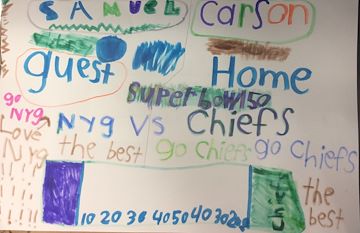 SAMUEL Carson
guest Home
SuperbowI50
go NYG
NYG VS Chiefs
Love NYG the best go chiefs go Chiefs
!!!!
!!!!!
10 20 30 40 50 40 30 20
Chiefs
the best